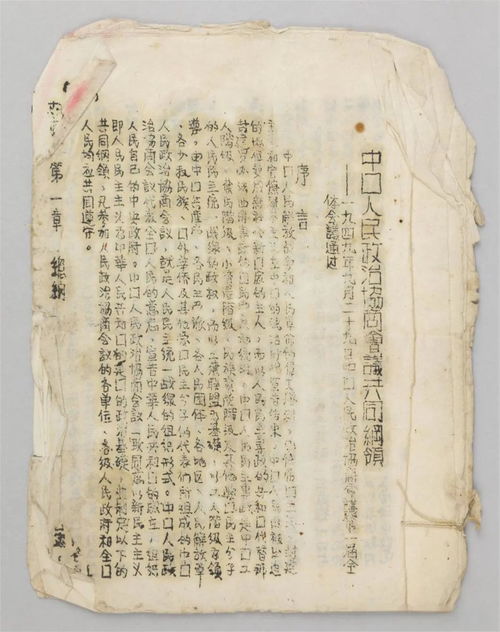 中囗人民政治協商會議共同綱領
——一九四九年九月二十九日中囗人民政治協商會議第一屆全
体会議通过
序言
中囗人民解放战争和人民革命的偉大
主义和官僚資本主义在中囗的統治时代宣告結束。中囗人民由被压迫
的地位变成为新社会新囗家的主人,而以人民民主專政的共和囗代替那
封建買办法西斯專政的囗民党反动統治。中囗人民民主專政是中囗工
人階級、農民階級、小資產階級、民族資產階級及其他愛囗民主分子
的人民民主統一战線的政权,而以工農聯盟为基礎,以工人階級为領
導。由中囗共產党、各民主党派、各人民團体、各地区、人民解放軍
、各少数民族、囗外華侨及其他愛囗民主分子的代表們所组成的中囗
人民政治協商会議,就是人民民主統一战線的组织形式。中囗人民政
治協商会議代表全囗人民的意志,宣告中華人民共和囗的成立,组织
人民自己的中央政府。中囗人民政治協商会議一致同意以新民主主义
即人民民主主义为中華人民共和囗建囗的政治基礎,並制定以下的
共同綱領,凡参加人民政治協商会議的各單位、各级人民政府和全囗
人民均应共同遵守。
第一章 總綱